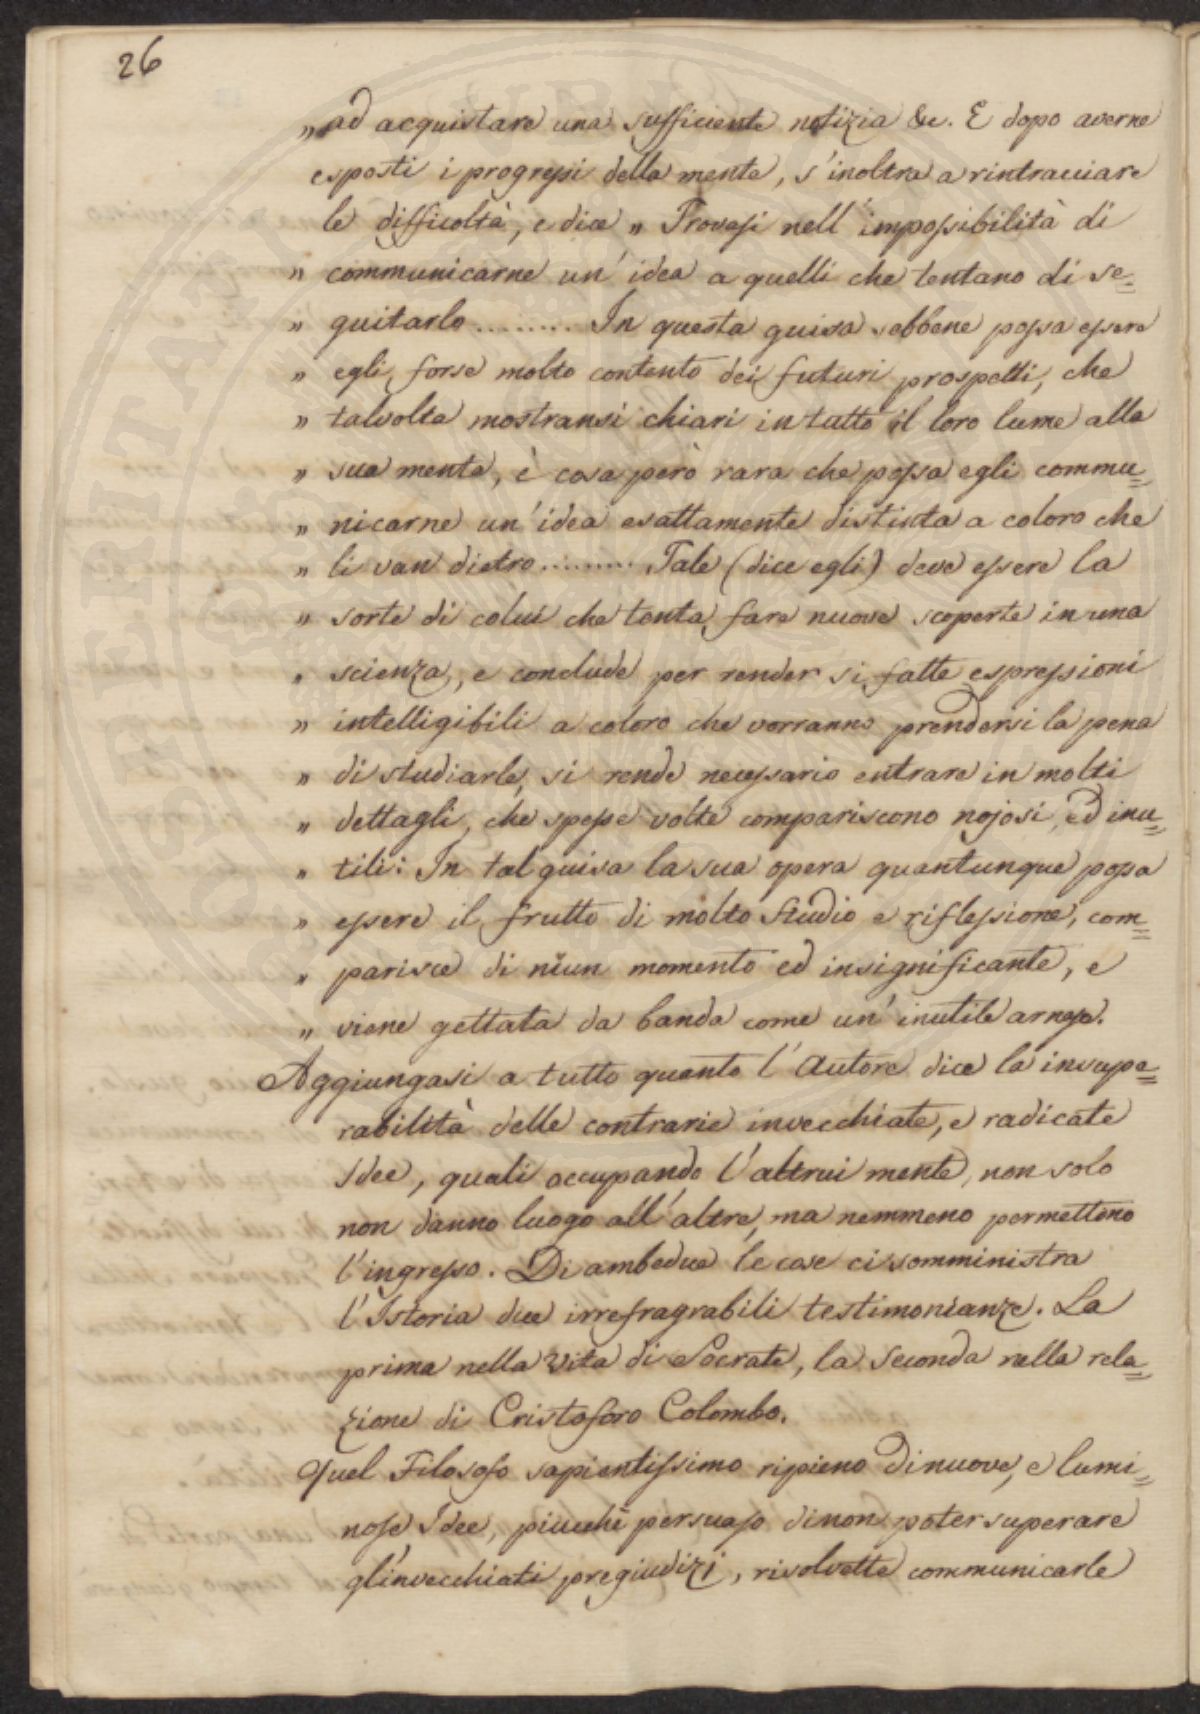 26
„ ad acquistare una sufficiente notizia &c. E dopo averne
esposti i progressi della mente, s'inoltra a rintracciare
le difficoltà, e dice „ Trovasi nell'impossibilità di
„ communicarne un'idea a quelli che tentano di se=
„ guitarlo ......... In questa guisa sebbene possa essere
„ egli, forse molto contento dei futuri prospetti, che
„ talvolta mostransi chiari in tutto il loro lume alla
„ sua mente, è cosa però rara che possa egli commu=
„ nicarne un'idea esattamente distinta a coloro che
„ li van dietro ......... Tale (dice egli) deve essere la
„ sorte di colui che tenta fare nuove scoperte in una
„ scienza, e conclude per render si fatte espressioni
„ intelligibili a coloro che vorranno prendersi la pena
„ di studiarle, si rende necessario entrare in molti
„ dettagli, che spesse volte compariscono nojosi, ed inu=
„ tili: In tal guisa la sua opera quantunque possa
„ essere il frutto di molto Studio e riflessione, com=
„ parisce di niun momento ed insignificante, e
„ viene gettata da banda come un'inutile arnese.
Aggiungasi a tutto quanto l'Autore dice la insupe=
rabilità delle contrarie invecchiate, e radicate
Idee, quali occupando l'altrui mente, non solo
non danno luogo all'altre, ma nemmeno permettono
l'ingresso. Di ambedue le cose ci somministra
l'Istoria due irrefragrabili testimonianze. La
prima nella Vita di Socrate, la Seconda nella rela=
zione di Cristoforo Colombo.
Quel Filosofo sapientissimo ripieno di nuove, e lumi=
nose Idee, piucchè persuaso di non poter superare
gl'invecchiati pregiudizi, risolvette communicarle